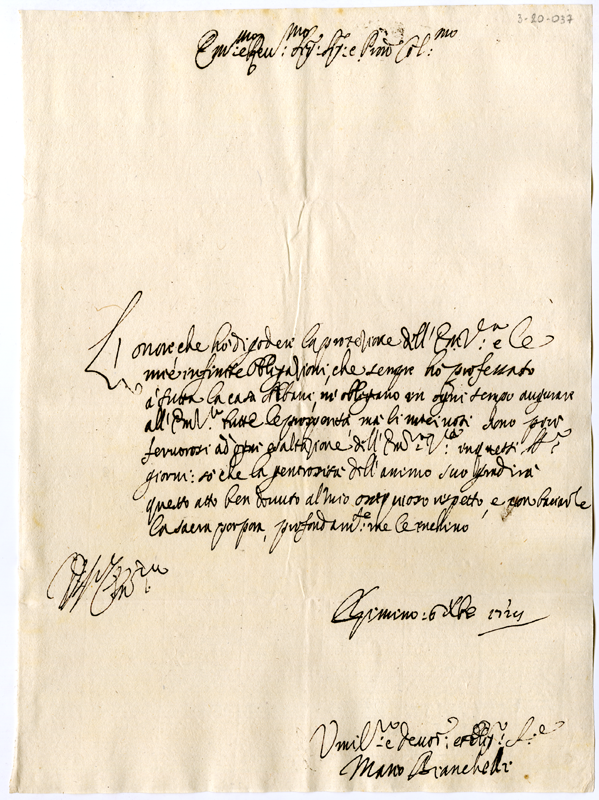 3-20-037
Em.mo e Rev.mo Sig.r Sig.r e Pron Col.mo
L'onore che hò di godere la protezione dell'Em.V.a e le
mie infinite obligazioni, che sempre hò professato
à tutta la casa Albani, mi obligano in ogni tempo augurare
all'Em.V.a tutte le prosperità, ma li miei voti sono più
fervorosi ad ogni esaltazione dell'Em.V.a in questi S.ti
giorni: sò che la generosità dell'animo suo gradirà
questo atto ben dovuto al mio ossequioso rispetto, e con baciarle
la sacra porpora, profondam.te me le inchino
Rimino: 6 Xbre
Umil.mo e devot. et obl. S.e
Bianchelli